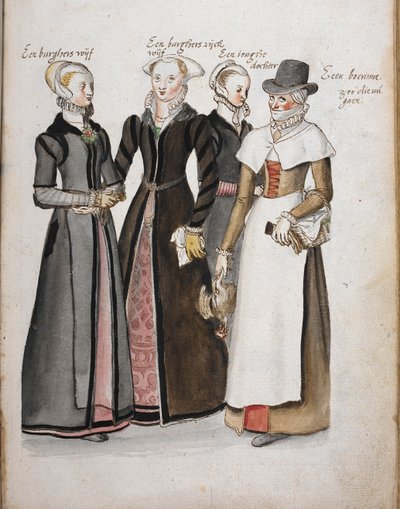 Een burghers wijf
Een burghers rijck
wijf
Een ionghe
dochter
Een boerinne
zoo die nu
gaen.